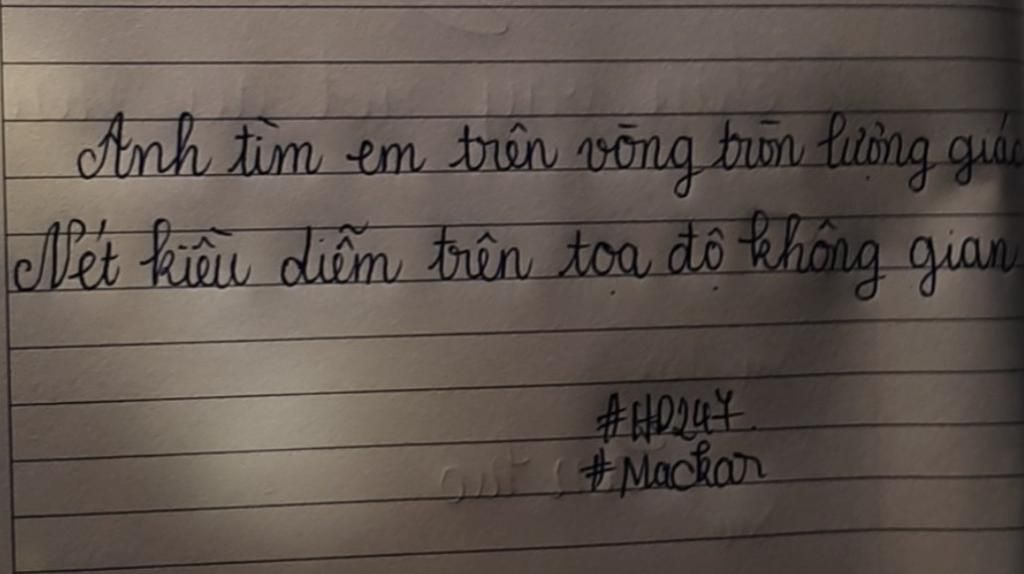 Anh tìm em trên vòng tròn lượng giác
Nét kiều diễm trên tọa độ không gian
#HD247
#Mackan